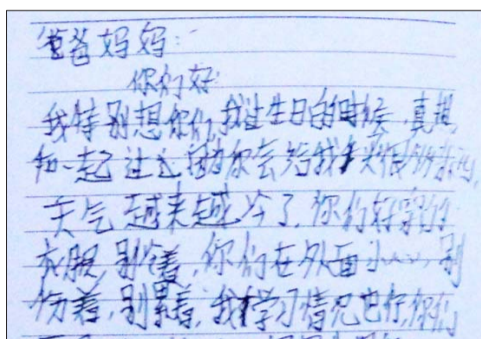 爸爸妈妈:
你们好
我特别想你们,我过生日的时候,真想
和一起过,因为你会给我买很多东西,
天气越来越冷了,你们好穿
衣服,别冷着,你们在外面小心,别
伤着,别累着,我学习情况也行,你们